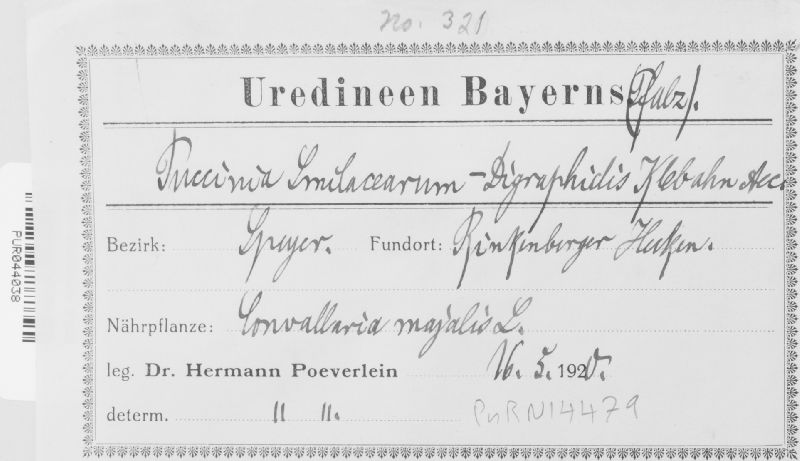 No. 321
Uredineen Bayerns (Pfalz).
Puccinia Smilacearum-Digraphidis Klebahn Aec.
Bezirk: Speyer. Fundort: Rinkenberger Hecken.
Nährpflanze: Convallaria majalis L.
leg. Dr. Hermann Poeverlein 16. 5. 1920.
determ. " ".
PUR N14479
PUR044038